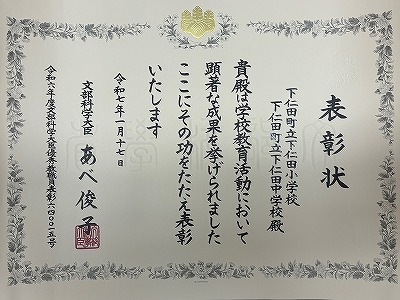 表彰状
下仁田町立下仁田小学校
下仁田町立下仁田中学校 殿
貴殿は学校教育活動において
顕著な成果を挙げられました
ここにその功をたたえ表彰
いたします
令和七年一月十七日
文部科学大臣 あべ俊子
令和六年度文部科学大臣優秀教職員表彰六四〇〇一五号